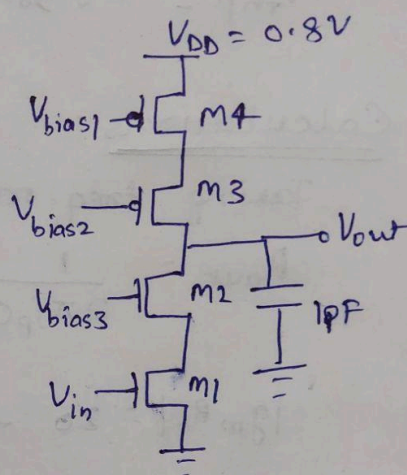 VDD = 0.8V
Vbias1
M4
M3
Vbias2
Vout
Vbias3
M2
1pF
Vin
M1